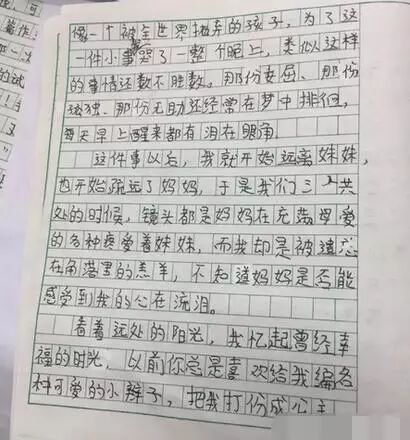 像一个被全世界抛弃的孩子，为了这
一件小事哭了一整个晚上，类似这样
的事情还数不胜数。那份委屈、那份
孤独、那份无助还经常在梦中排徊，
每天早上醒来都有泪在眼角。
这件事以后，我就开始远离妹妹，
也开始疏远了妈妈，于是我们三人共
处的时候，镜头都是妈妈在充满母爱
的各种疼爱着妹妹，而我却是被遗忘
在角落里的羔羊，不知道妈妈是否能
感受到我的心在流泪。
看着远处的阳光，我忆起曾经幸
福的时光，以前你总是喜欢给我编各
种可爱的小辫子，把我打份成公主